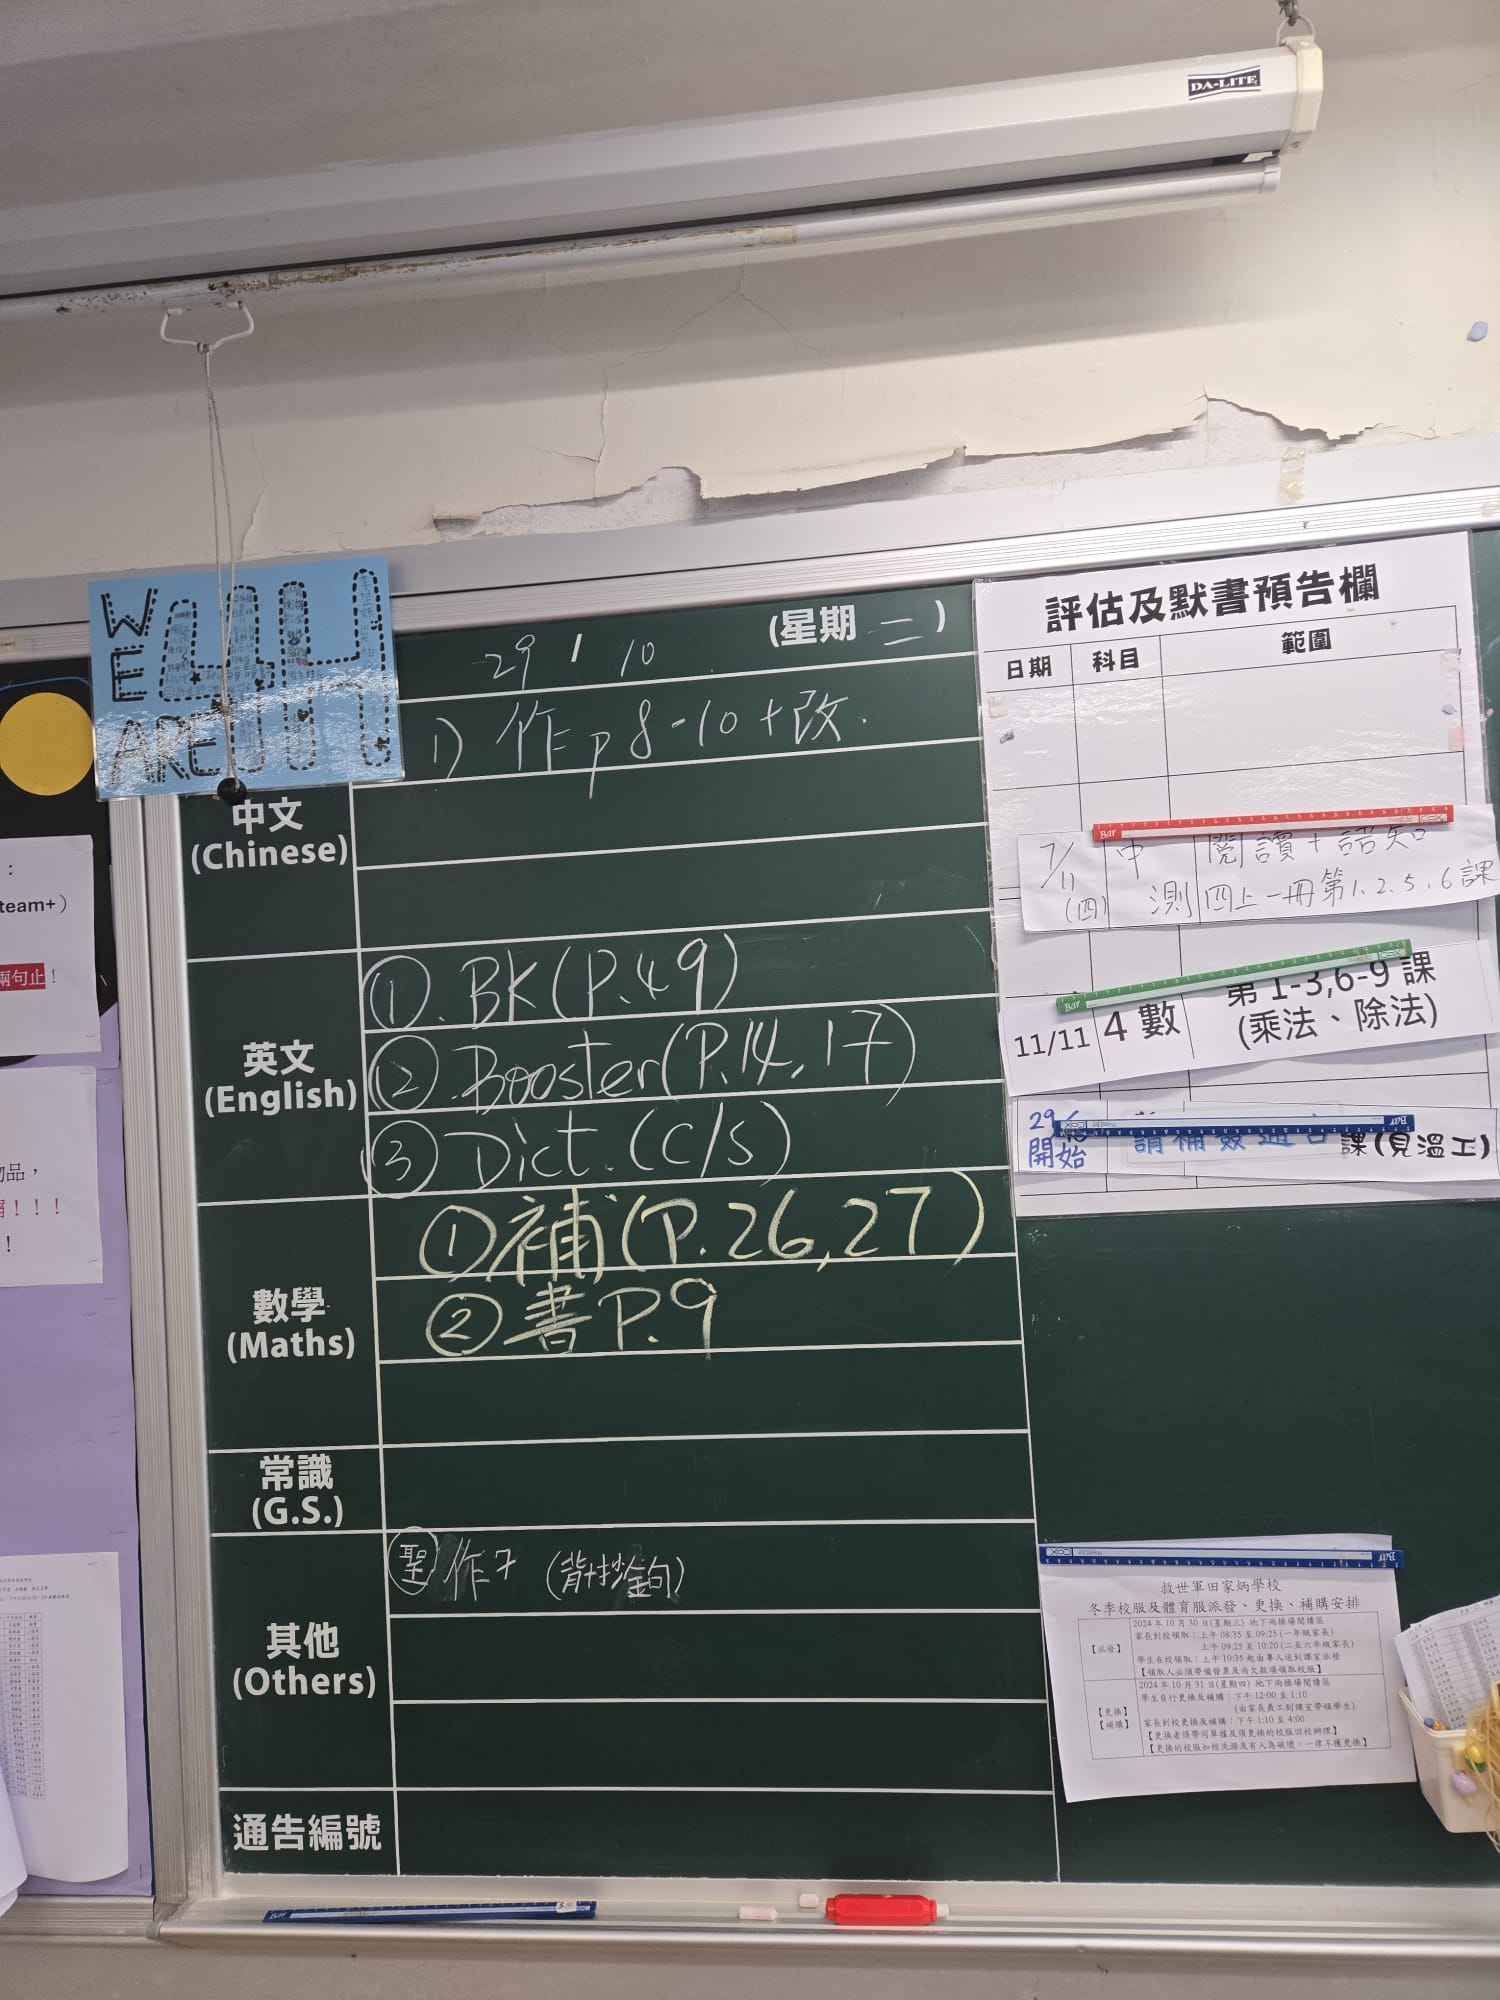 DA-LITE
WE
ARE
4H
29 / 10 (星期 二 )
1) 作 p 8-10 + 改.
中文
(Chinese)
英文
(English)
① . BK (P.49)
② . Booster (P.14, 17)
③ Dict. (C/S)
數學
(Maths)
① 補 (P.26,27)
② 書 P.9
常識
(G.S.)
其他
(Others)
聖 作7 (背抄金句)
通告編號
評估及默書預告欄
日期 科目 範圍
7/11 (四) 中測 閱讀 + 語知
四上一冊第1、2、5、6課
11/11 4 數 第 1-3,6-9 課
(乘法、除法)
29
開始
課(見溫工)
救世軍田家炳學校
冬季校服及體育服派發、更換、補購安排
【派發】
2024 年 10 月 30 日(星期三) 地下雨操場閱讀區
家長到校領取：上午 08:35 至 09:25 (一年級家長)
上午 09:25 至 10:20 (二至六年級家長)
學生在校領取：上午 10:35 起由專人送到課室派發
【領取人必須帶備發票及尚欠款項領取校服】
【更換】
【補購】
2024 年 10 月 31 日(星期四) 地下雨操場閱讀區
學生自行更換及補購：下午 12:00 至 1:10
(由家長義工到課室帶領學生)
家長到校更換及補購：下午 1:10 至 4:00
【更換者須帶同單據及須更換的校服回校辦理】
【更換的校服如經洗滌及有人為破壞，一律不獲更換】
：
team+）
兩句止！
物品，
！！！
！